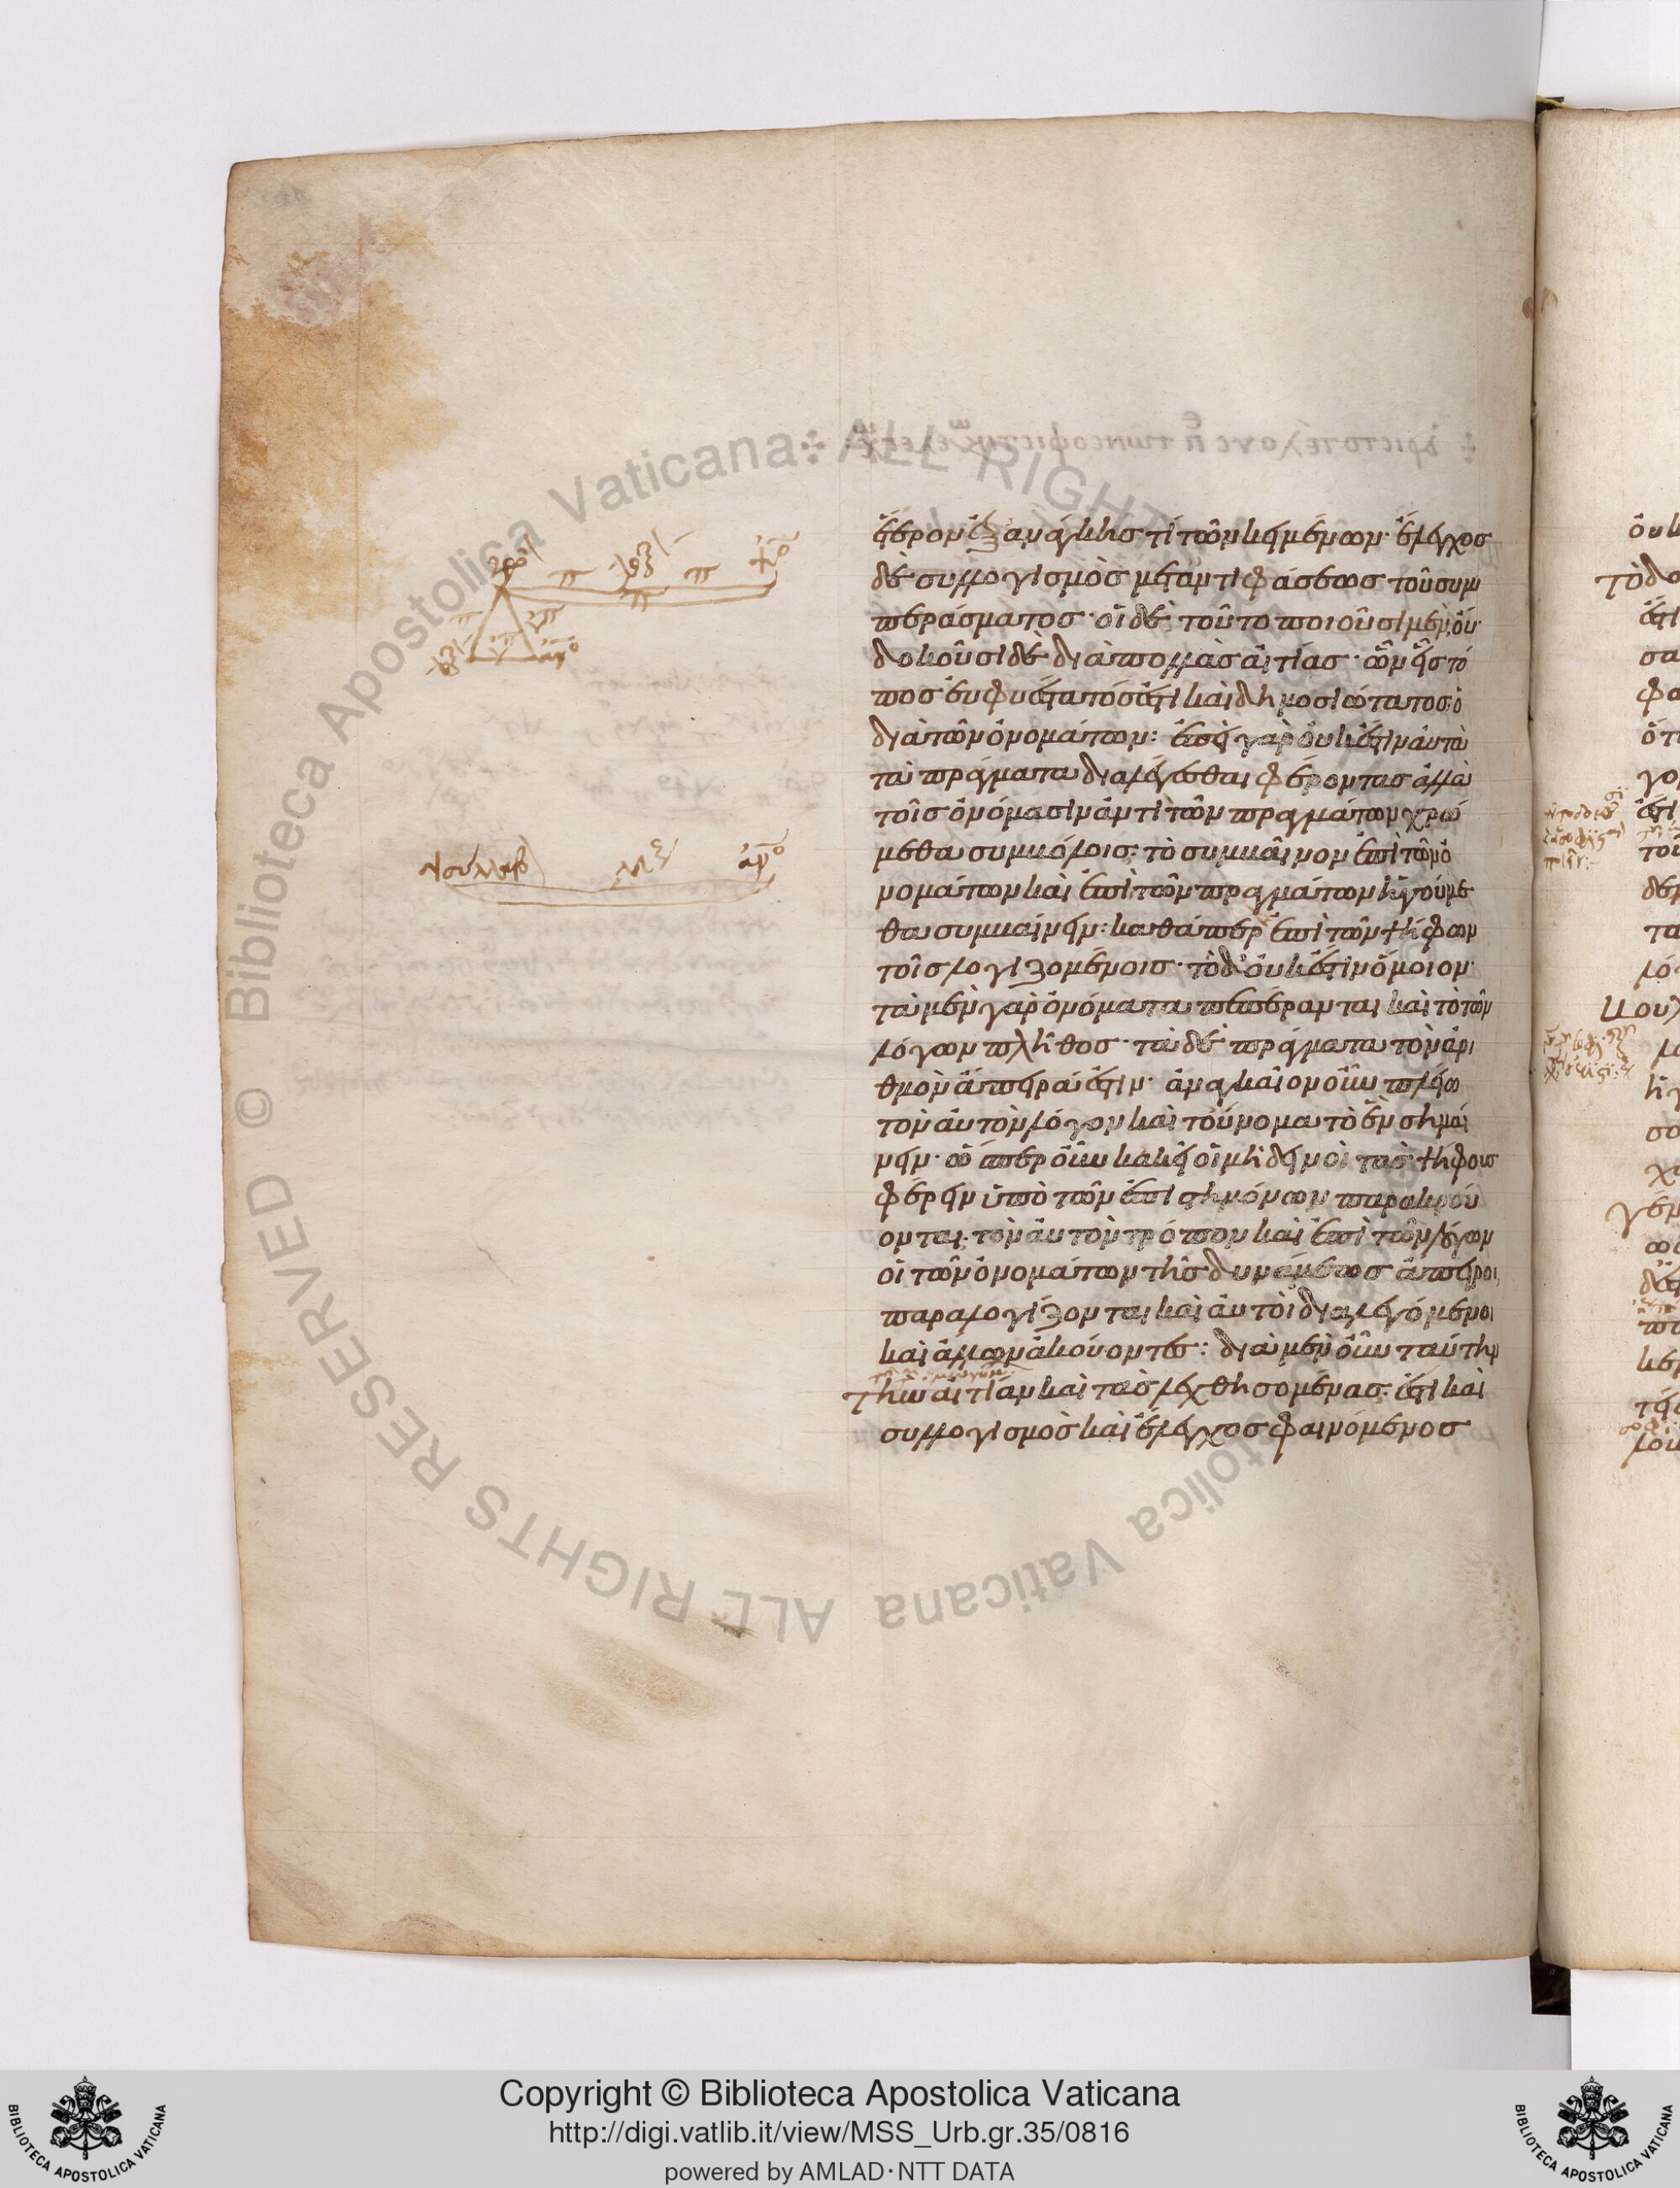 ἕτερον ἐξ ἀνάγκης τι τῶν κειμένων· ἔλεγχος
δὲ συλλογισμὸς μετ' ἀντιφάσεως τοῦ συμ
περάσματος· οἱ δὲ τοῦτο ποιοῦσι μὲν οὔ·
δοκοῦσι δὲ διὰ πολλὰς αἰτίας· ὧν εἷς τό
πος εὐφυέστατός ἐστι καὶ δημοσιώτατος ὁ
διὰ τῶν ὀνομάτων: ἐπεὶ γὰρ οὐκ ἔστιν αὐτὰ
τὰ πράγματα διαλέγεσθαι φέροντας ἀλλὰ
τοῖς ὀνόμασιν ἀντὶ τῶν πραγμάτων χρώ
μεθα συμβόλοις: τὸ συμβαῖνον ἐπὶ τῶν ὀ
νομάτων καὶ ἐπὶ τῶν πραγμάτων ἡγούμε
θα συμβαίνειν: καθάπερ ἐπὶ τῶν ψήφων
τοῖς λογιζομένοις· τὸ δ' οὐκ ἔστιν ὅμοιον·
τὰ μὲν γὰρ ὀνόματα πεπέρανται καὶ τὸ τῶν
λόγων πλῆθος· τὰ δὲ πράγματα τὸν ἀρι
θμὸν ἄπειρά ἐστιν· ἀναγκαῖον οὖν πλείω
τὸν αὐτὸν λόγον καὶ τοὔνομα τὸ ἓν σημαί
νειν· ὥσπερ οὖν κἀκεῖ οἱ μὴ δεινοὶ τὰς ψήφους
φέρειν ὑπὸ τῶν ἐπιστημόνων παρακρού
ονται· τὸν αὐτὸν τρόπον καὶ ἐπὶ τῶν λόγων
οἱ τῶν ὀνομάτων τῆς δυνάμεως ἄπειροι
παραλογίζονται καὶ αὐτοὶ διαλεγόμενοι
καὶ ἄλλων ἀκούοντες: διὰ μὲν οὖν ταύτην
τὴν αἰτίαν καὶ τὰς λεχθησομένας· ἔστι καὶ
συλλογισμὸς καὶ ἔλεγχος φαινόμενος
Copyright © Biblioteca Apostolica Vaticana
http://digi.vatlib.it/view/MSS_Urb.gr.35/0816
powered by AMLAD·NTT DATA
BIBLIOTECA APOSTOLICA VATICANA
BIBLIOTECA APOSTOLICA VATICANA
Biblioteca Apostolica Vaticana
ALL RIGHTS RESERVED ©